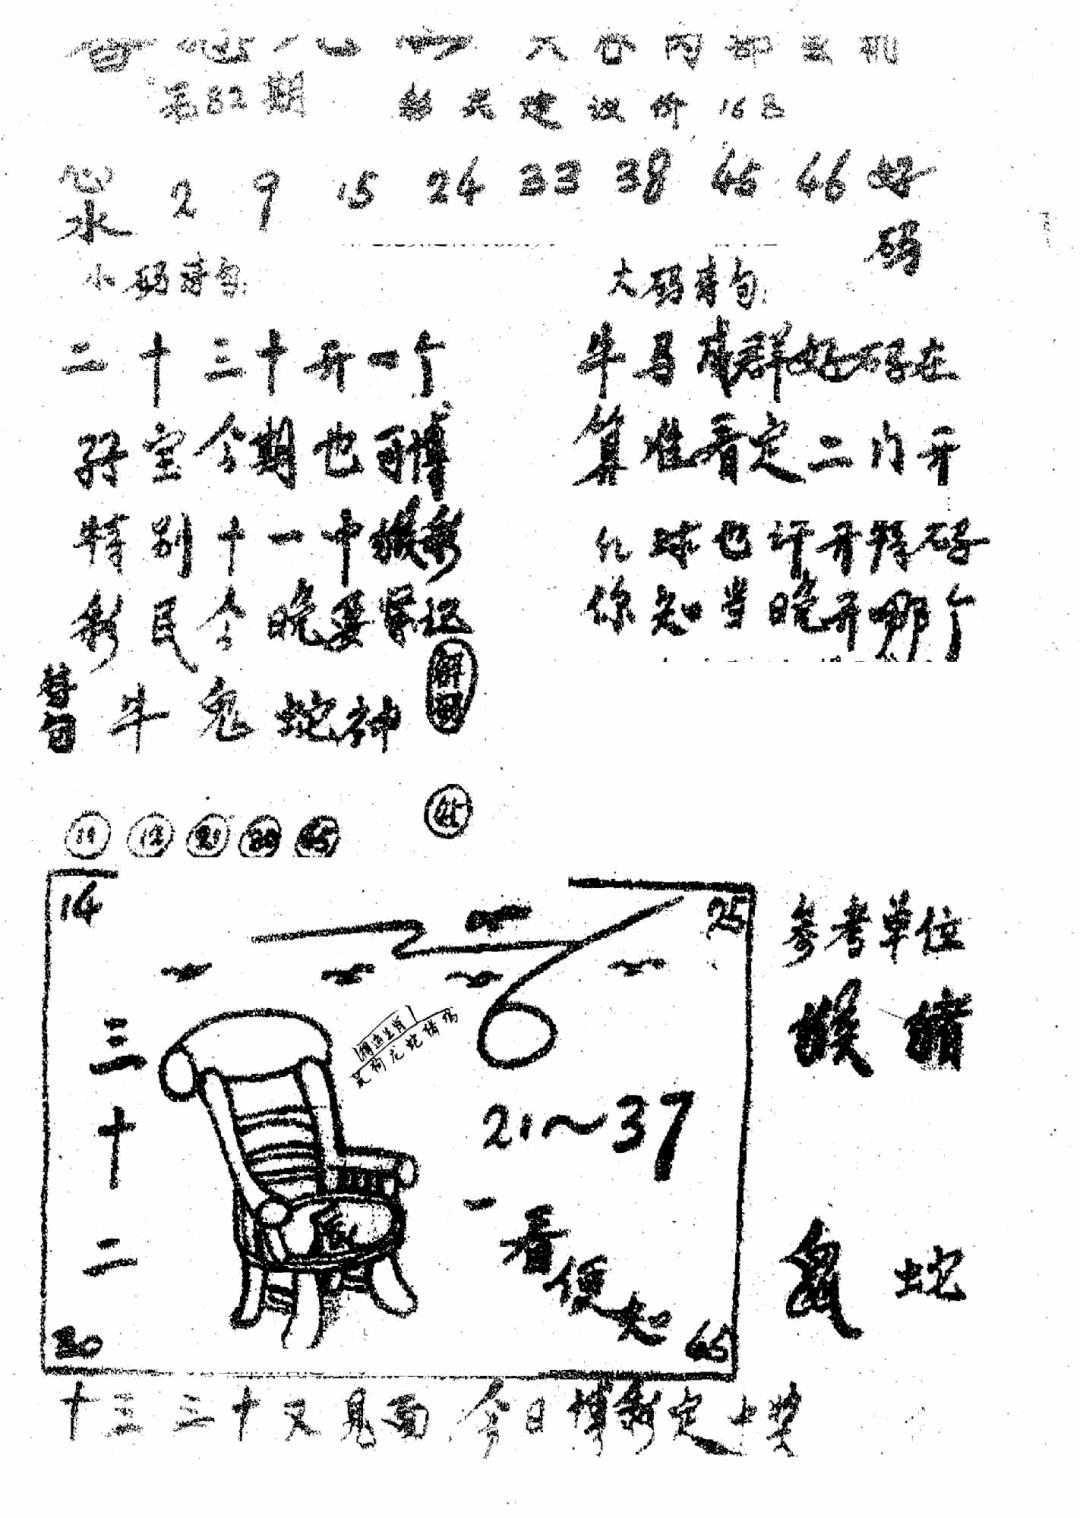 六合内部玄机
第82期 彩民建议价 16
心水 2 9 15 24 33 38 45 46 好码
小码诗句: 大码诗句:
二十三十开一个
孖宝今期也可博
特别十一中猴彩
彩民今晚要紧记
牛马成群好码在
算准看定二门开
几球也许开特码
你知当晚开那个
昔句 牛鬼蛇神
19 12 21 30 45 45
14 25
三十二
21～37
一看便知
30 45
参考单位
猴 猪
鼠 蛇
十三三十又见面 今日博彩定中奖